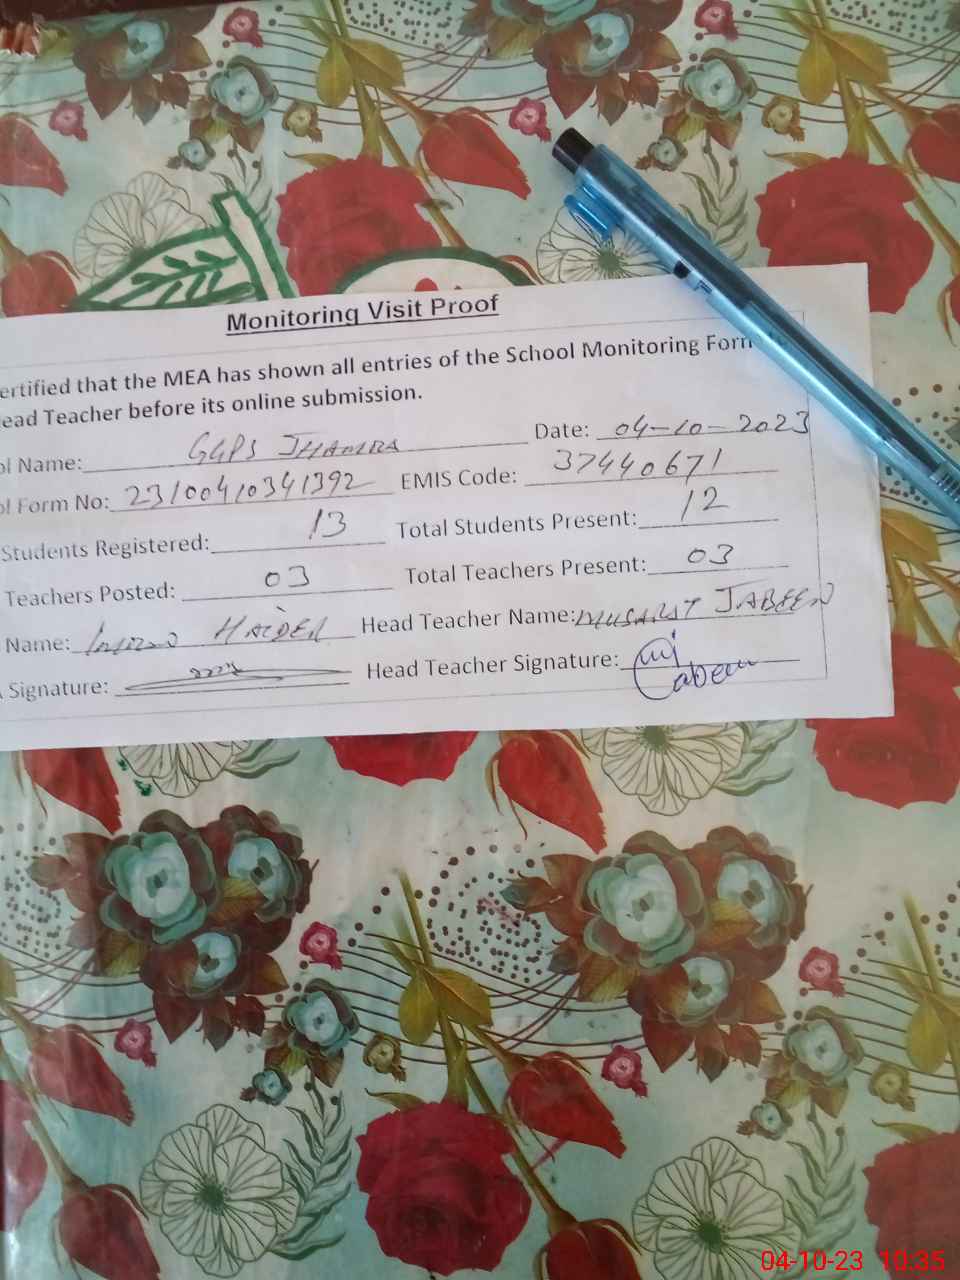 Monitoring Visit Proof
ertified that the MEA has shown all entries of the School Monitoring Form
ead Teacher before its online submission.
ol Name: GGPS JHAMRA Date: 04-10-2023
ol Form No: 23100410341392 EMIS Code: 37440671
Students Registered: 13 Total Students Present: 12
Teachers Posted: 03 Total Teachers Present: 03
Name: HAIDER Head Teacher Name: MUSARST JABEEN
Signature: Head Teacher Signature: Jabeen
04-10-23 10:35